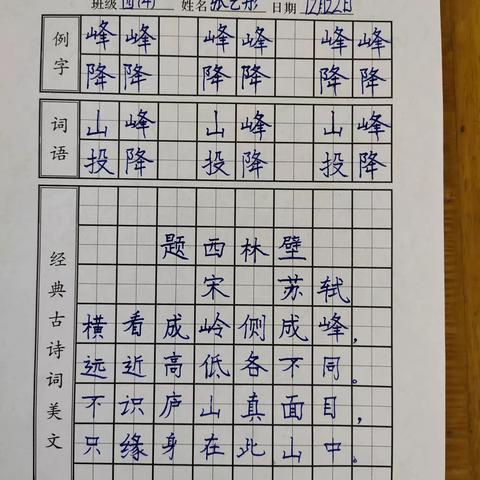 班级 四(4) 姓名 张艺彤 日期 12月22日
例字
峰峰 峰峰 峰峰
降降 降降 降降
词语
山峰 山峰 山峰
投降 投降 投降
经典古诗词美文
题西林壁
宋 苏轼
横看成岭侧成峰，
远近高低各不同。
不识庐山真面目，
只缘身在此山中。